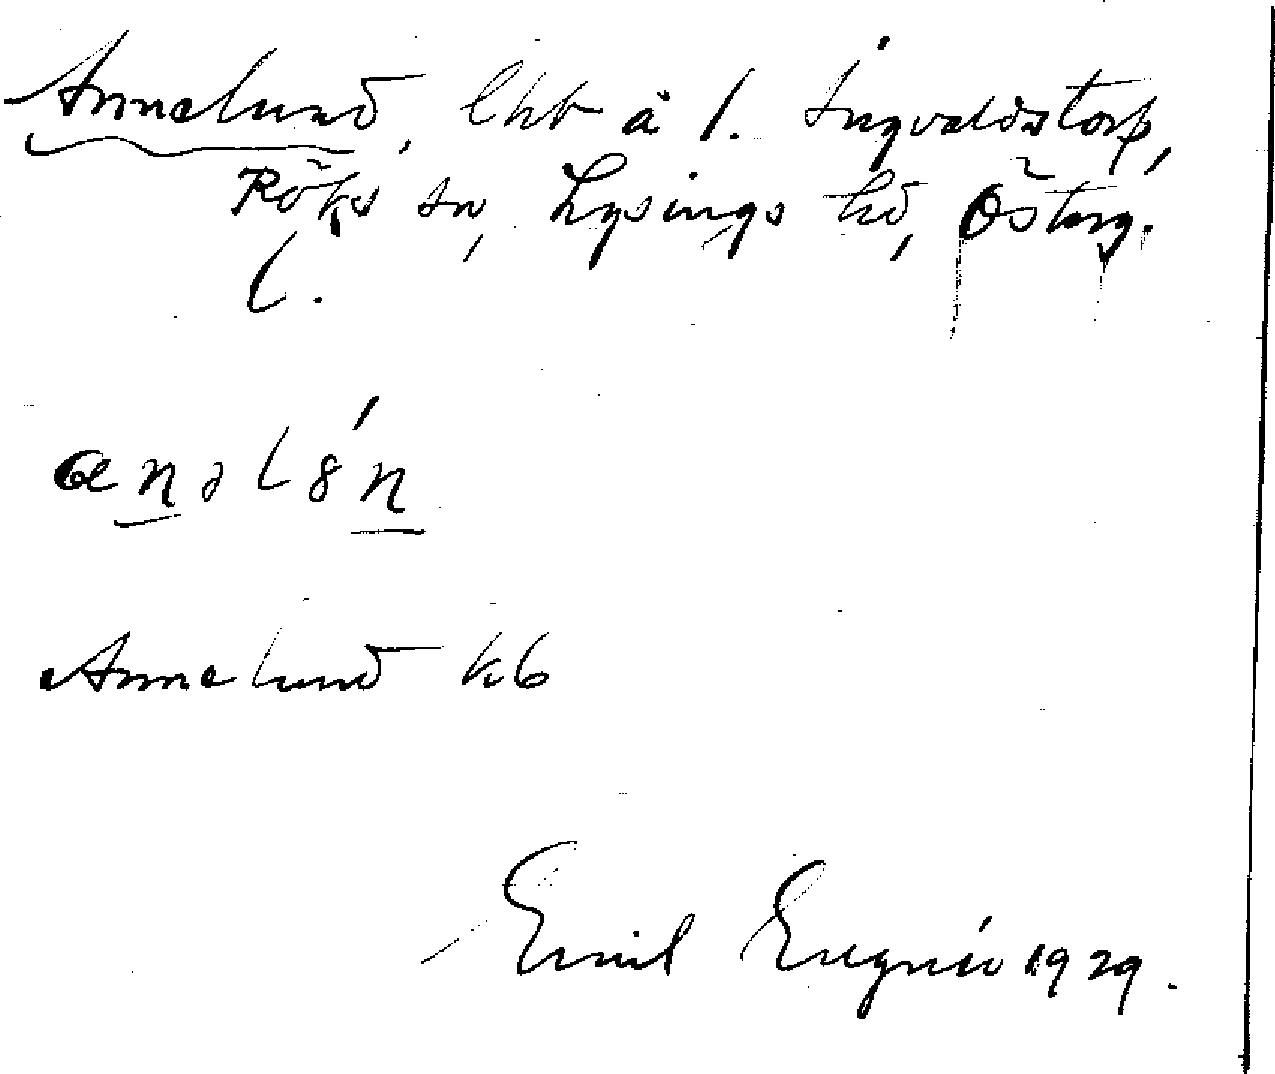 Annelund, lht å 1. Ingvaldstorp,
Röks sn, Lysings hd, Österg.
l.
anəl8́n
Annelund kb
Emil 1929.